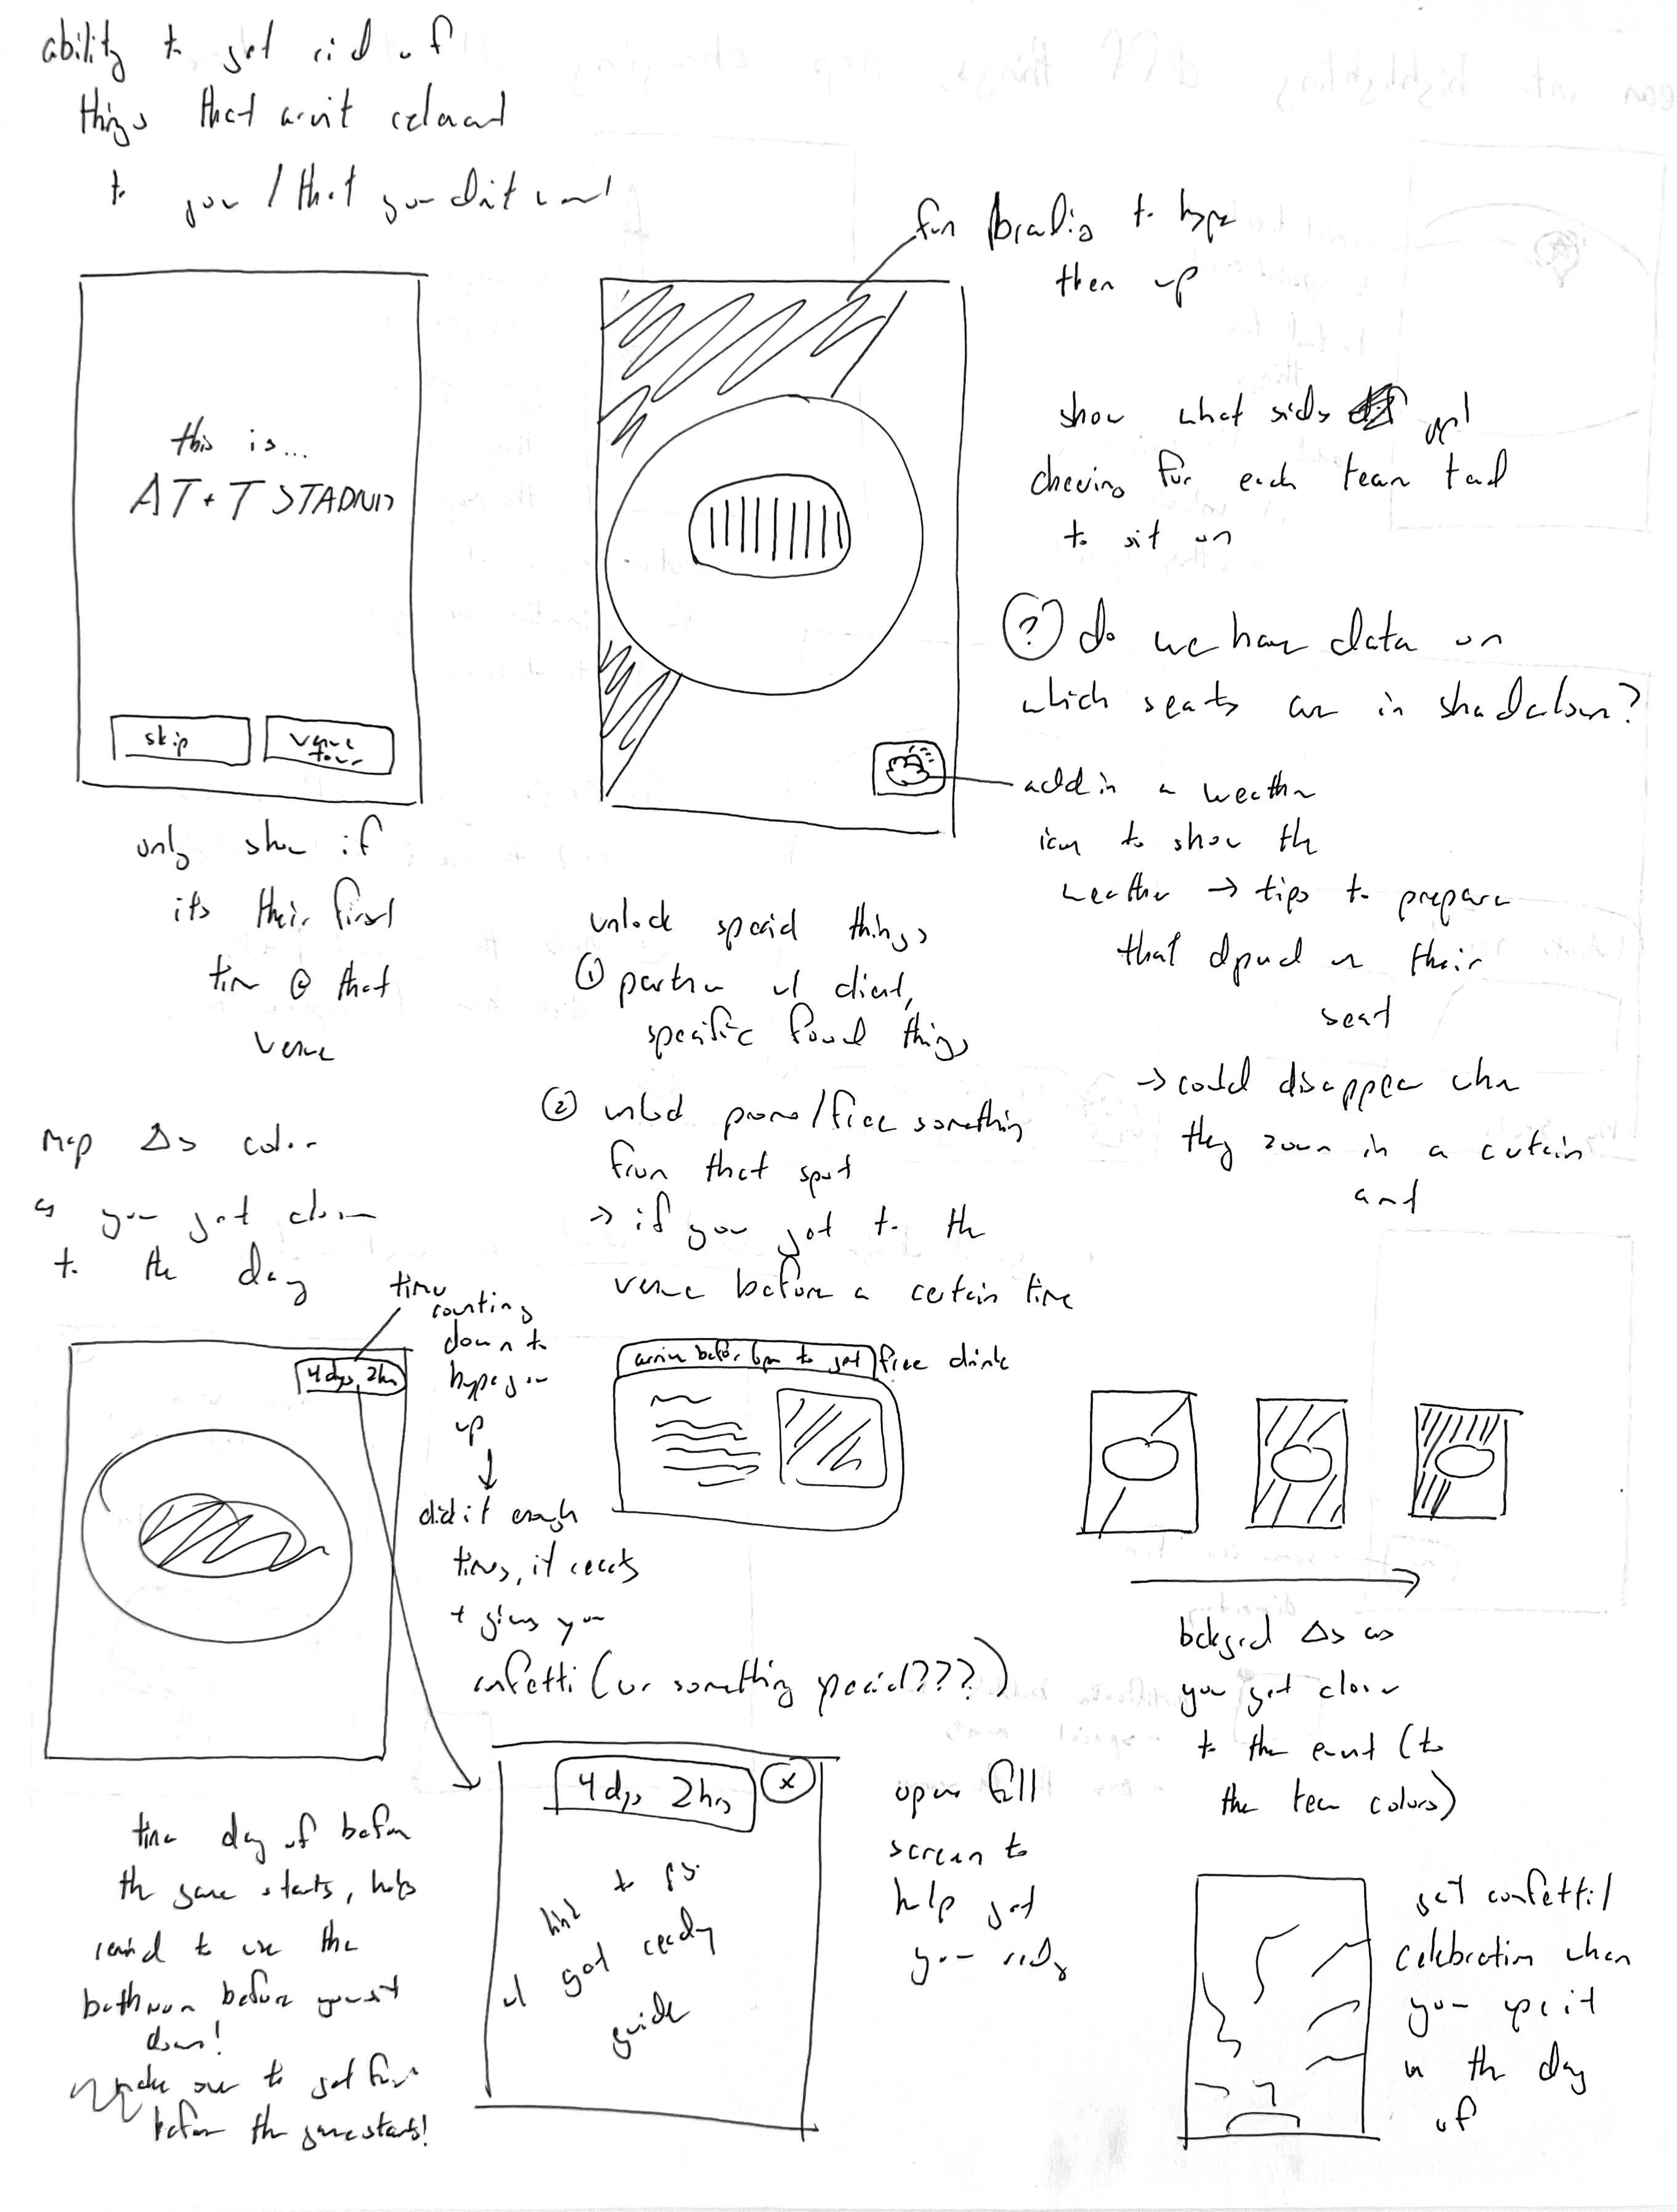 ability to get rid of
things that arn't relevant
to you / that you don't want
fun branding to hype
them up
this is...
AT+T STADIUM
skip
venue
tour
only show if
its their first
time @ that
venue
show what sides of ppl
cheering for each team tend
to sit on
? do we have data on
which seats are in
add in a weather
icon to show the
weather → tips to prepare
that depend on their
seat
→ could disappear when
they zoom in a certain
amt
unlock special things
① partner w/ client,
specific food things
② unlock promo/free something
from that spot
→ if you get to the
venue before a certain time
arrive before 6pm to get free drink
map Δs color
as you get closer
to the day
timer
counting
down to
hype you
up
↓
click it enough
times, it reacts
+ gives you
confetti (or something special???)
4 days 2hrs
4 days 2hrs
x
link to
w/ get ready
guide
open full
screen to
help get
you ready
time day of before
the game starts, helps
remind to use the
bathroom before you sit
down!
make sure to get
before the game starts!
backgrd Δs as
you get closer
to the event (to
the team colors)
get confetti/
celebration when
you open it
on the day
of